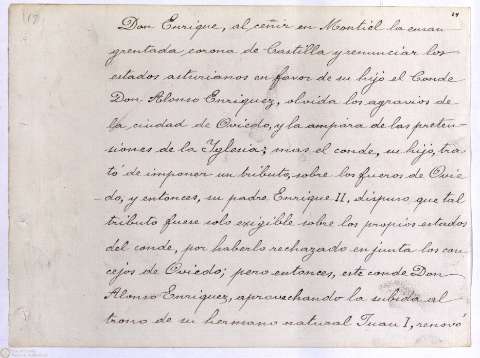 (17)
14
Don Enrique, al ceñir en Montiel la ensan
grentada corona de Castilla y renunciar los
estados asturianos en favor de su hijo el Conde
Don Alonso Enriquez, olvida los agravios de
la ciudad de Oviedo, y la ampara de las preten-
siones de la Yglesia; mas el conde, su hijo, tra
tó de imponer un tributo sobre los fueros de Ovie
do, y entonces, su padre Enrique II, dispuso que tal
tributo fuese solo exigible sobre los propios estados
del conde, por haberlo rechazado en junta los con
cejos de Oviedo; pero entonces, este conde Don
Alonso Enriquez, aprovechando la subida al
trono de su hermano natural Juan I, renovó